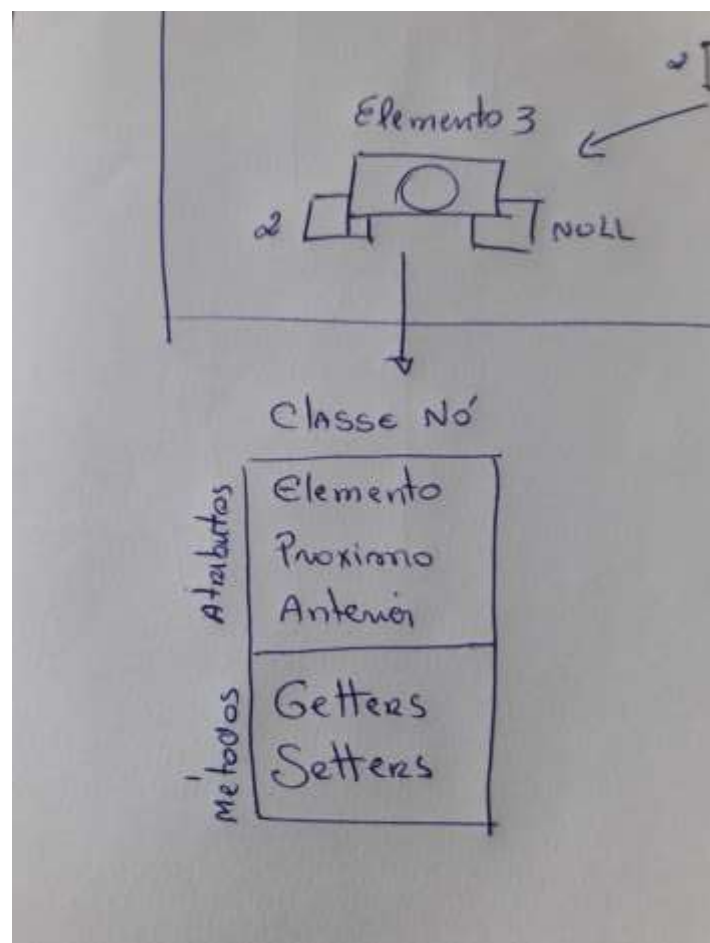 2
Elemento 3
2
NULL
Classe Nó
Atributos
Elemento
Proximo
Anterior
Métodos
Getters
Setters